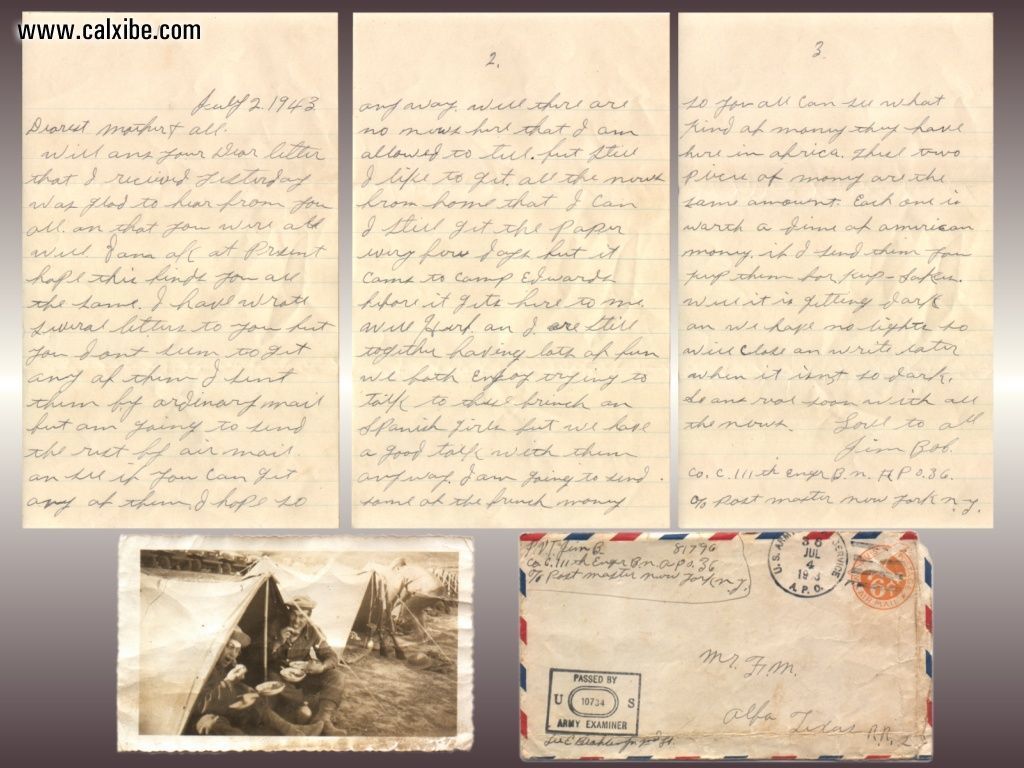 www.calxibe.com
July 2. 1943
Dearest mother & all.
will ans your Dear letter
that I recieved yesterday
was glad to hear from you
all. an that you were all
well. I am ok at Prsent
hope this finds you all
the same. I have wrote
several letters to you but
you dont seem to get
any of them I sent
them by ordinary mail
but am going to send
the rest by air mail.
an see if you can get
any of them, I hope so
2.
anyway. well there are
no news here that I am
allowed to tell. but still
I like to get all the news
from home that I can
I still get the Paper
every few days but it
cams to camp Edwards
before it gets here to me.
well Herb. an I are still
together having lots of fun
we both enjoy trying to
talk to these french an
Spanish girls but we have
a good talk with them
anyway. I am going to send
some of the french money
3
so you all can see what
kind of money they have
here in africa. these two
Piece of money are the
same amount. Each one is
warth a dime of american
money. if I send them you
keep them for keep-saken.
well it is getting dark
an we have no lights so
will close an write later
when it isnt so dark.
So ans real soon with all
the news. Love to all
Jim Bob.
Co. C. 111th Engr B.n. A P O. 36.
c/o Post master new York n.y.
P.V.T. Jim B. 81796
Co. C. 111th Engr B.n. a P.o. 36
c/o Post master new York n.y.
U.S. ARMY SERVICE
JUL
4
A.P.O.
6¢
AIR MAIL
Mr. F.M.
Alba Texas
R.R. 2
PASSED BY
U 10734 S
ARMY EXAMINER